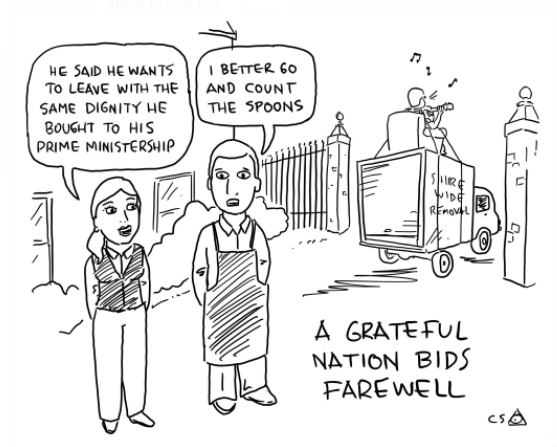 About to post this.
HE SAID HE WANTS
TO LEAVE WITH THE
SAME DIGNITY HE
BOUGHT TO HIS
PRIME MINISTERSHIP
I BETTER GO
AND COUNT
THE SPOONS
SHIRE
WIDE
REMOVAL
A GRATEFUL
NATION BIDS
FAREWELL
CS